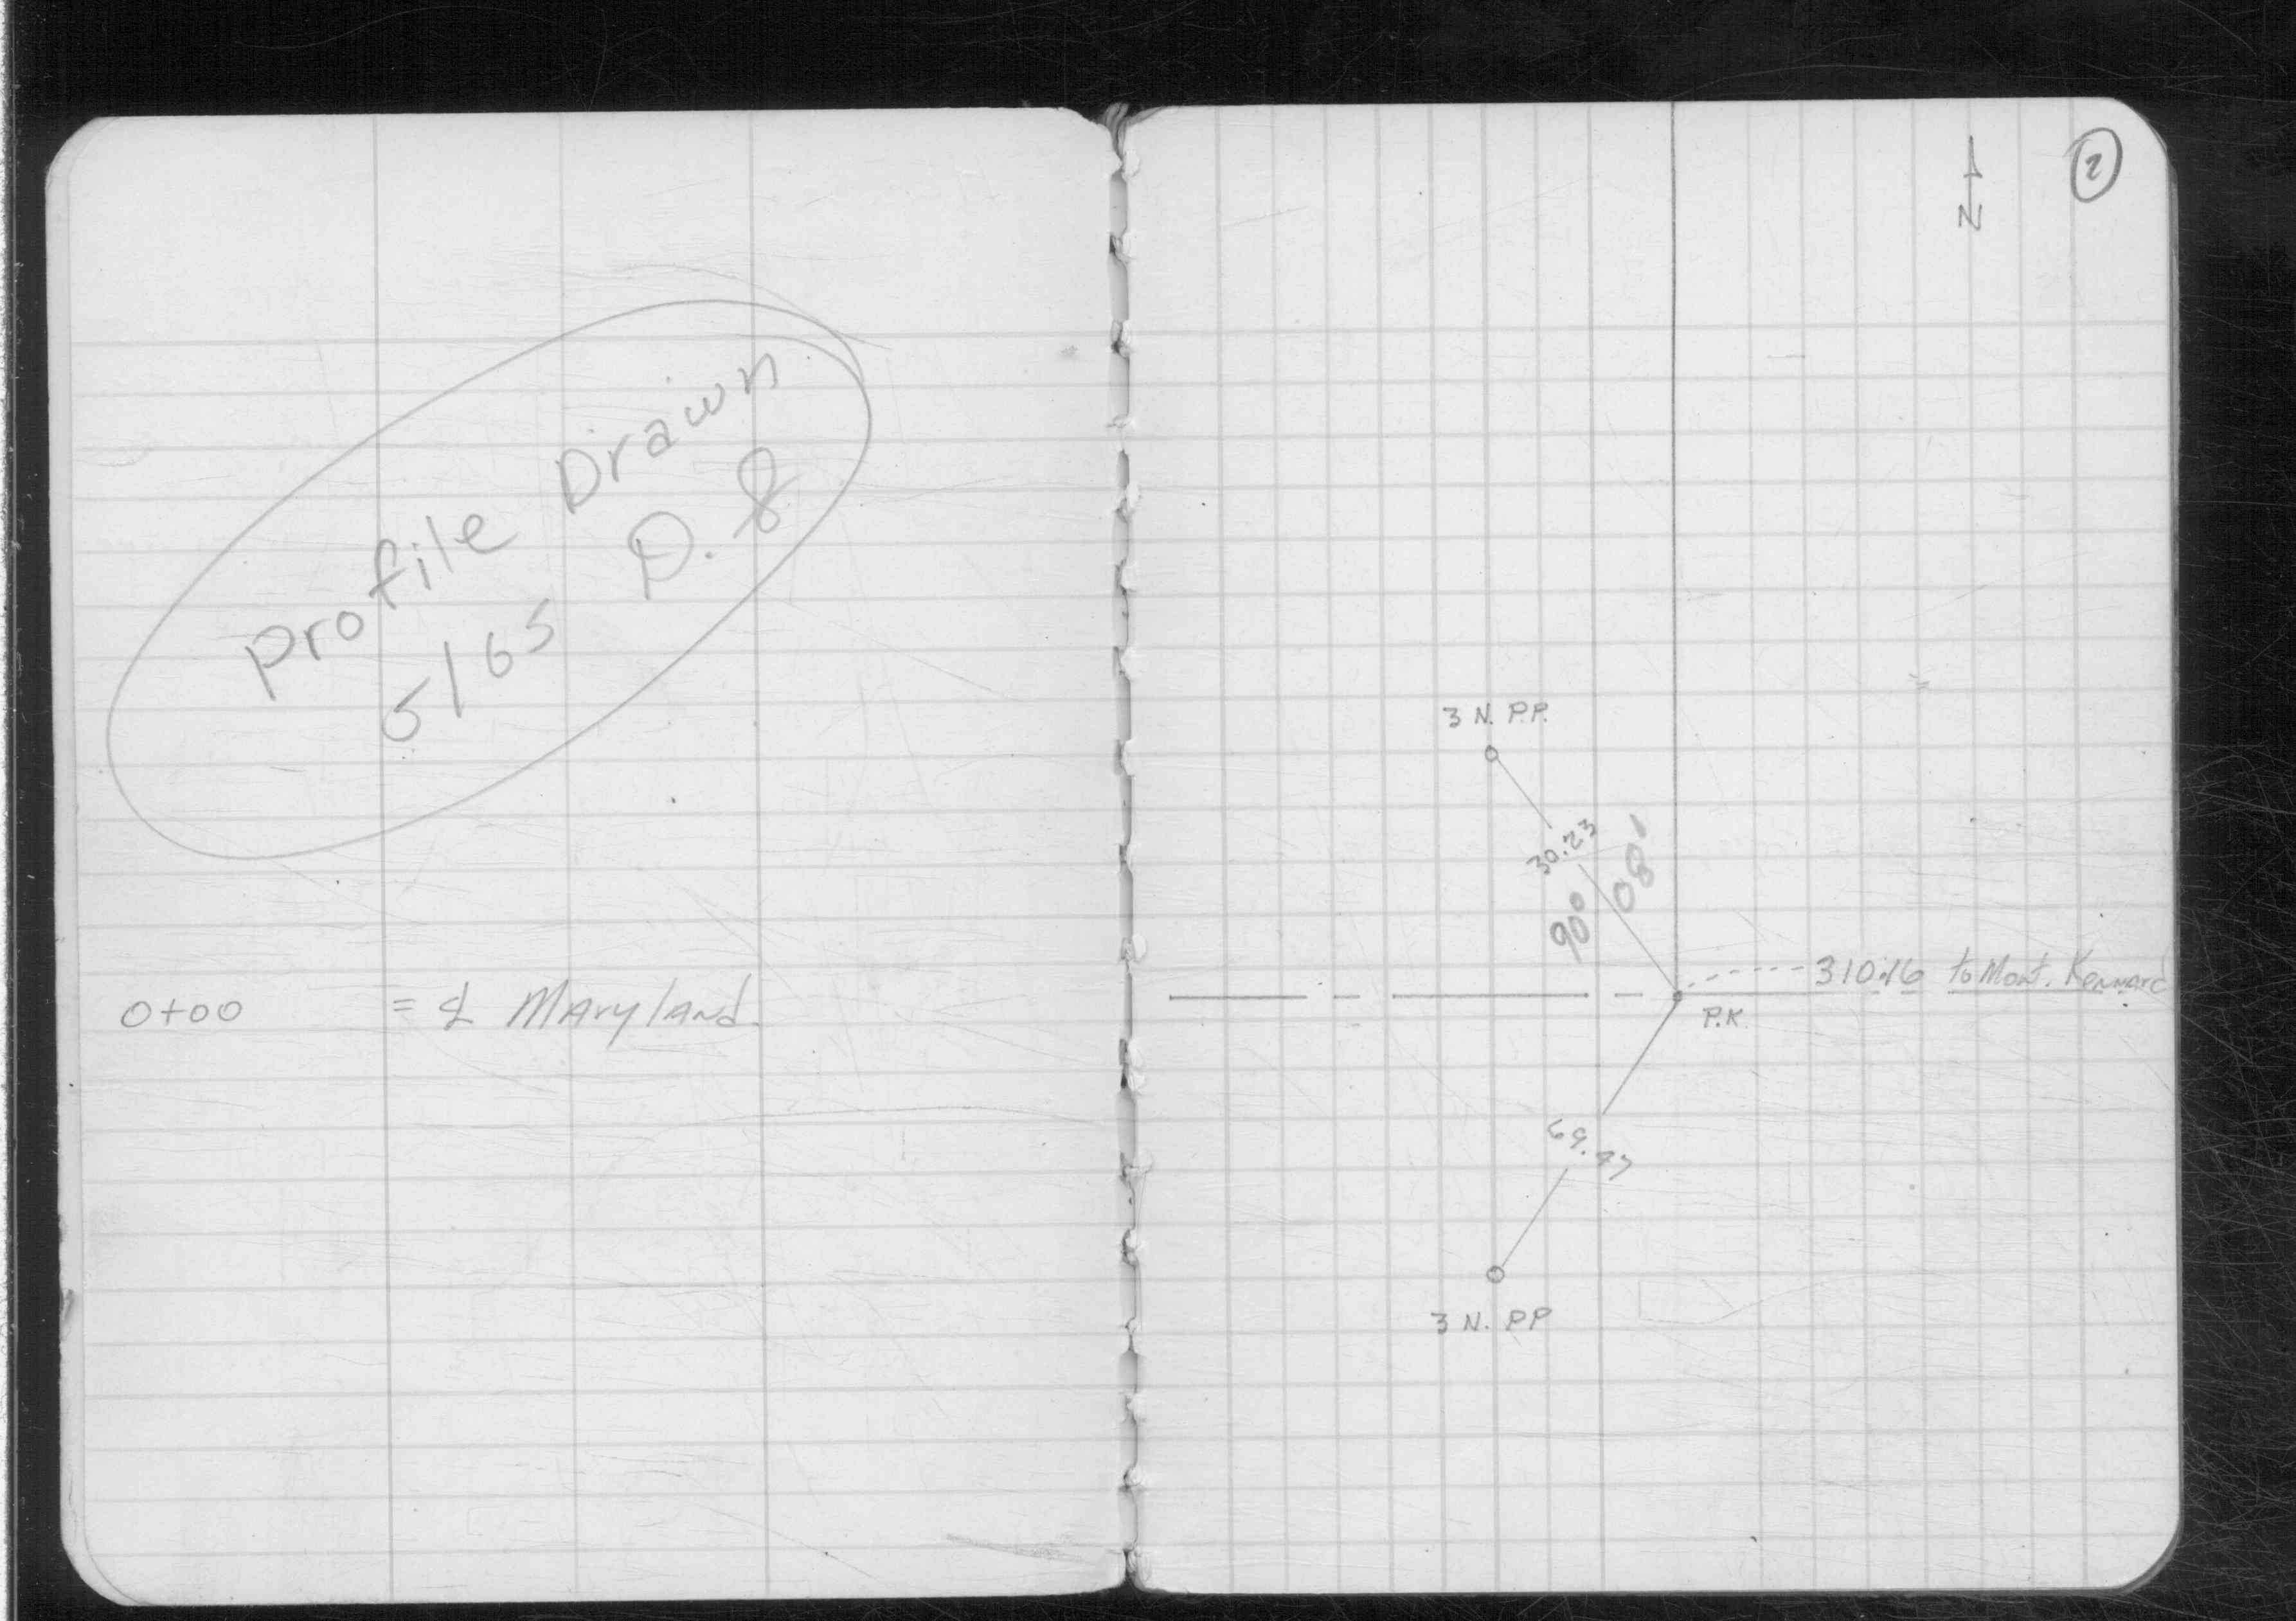 Profile Drawn
5/65 D. 8
0+00 = ℄ Maryland.
2
N
3 N. P.P.
30.23
90°
310.16 to Mont. Kennard
P.K.
3 N. PP